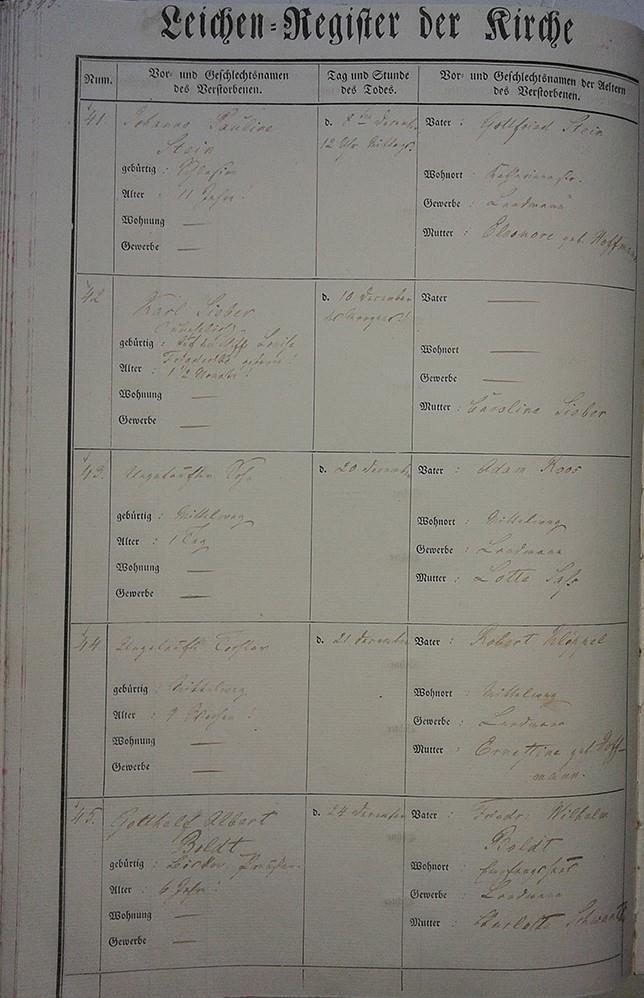 Leichen-Register der Kirche
Num.
Vor- und Geschlechtsnamen
des Verstorbenen.
Tag und Stunde
des Todes.
Vor- und Geschlechtsnamen der Aeltern
des Verstorbenen.
41
Johanne Pauline
Stein
gebürtig :
Alter : 11 Jahr.
Wohnung —
Gewerbe —
d. 8 ten Decemb.
12 Uhr Mittags.
Vater : Gottfried Stein
Wohnort :
Gewerbe : Landmann
Mutter : Eleonore geb. Hoffmann
42
Karl Sieber
gebürtig : Louise
Alter : 1 1/2 Monate !
Wohnung —
Gewerbe —
d. 10 December
des Morgens !
Vater —
Wohnort —
Gewerbe —
Mutter : Carolina Sieber
43.
Ungetaufter Sohn
gebürtig : Mittelweg
Alter : 1 Tag
Wohnung —
Gewerbe —
d. 20 Decemb.
Vater : Adam Roos
Wohnort : Mittelweg
Gewerbe : Landmann
Mutter : Lotte
44
Ungetaufte Tochter
gebürtig : Mittelweg
Alter : 9 Wochen !
Wohnung —
Gewerbe —
d. 21 December
Vater : Robert Klöppel
Wohnort : Mittelweg
Gewerbe : Landmann
Mutter : Ernestine geb. Hoff-
mann.
45.
Gotthelf Albert
Boldt
gebürtig : Preußen.
Alter : 6 Jahr !
Wohnung —
Gewerbe —
d. 24 December
Vater : Friedr. Wilhelm
Boldt
Wohnort :
Gewerbe : Landmann
Mutter : Charlotte